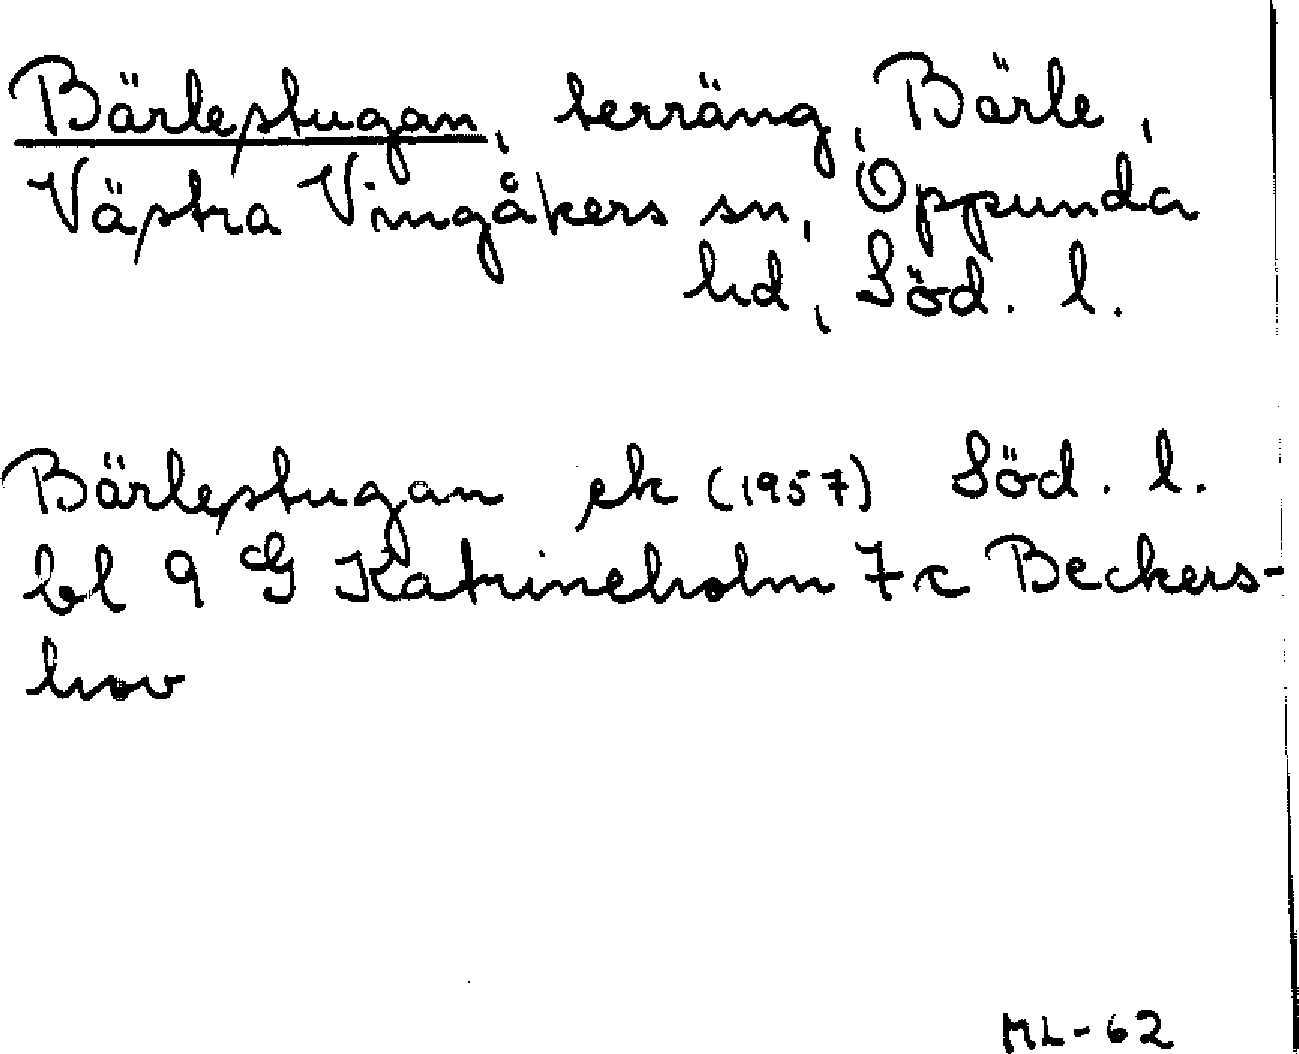 Bärlestugan, terräng, Bärle,
Västra Vingåkers sn, Oppunda
hd, Söd. l.
Bärlestugan ek (1957) Söd. l.
bl 9 G Katrineholm 7 c Beckers-
hov
ML-62